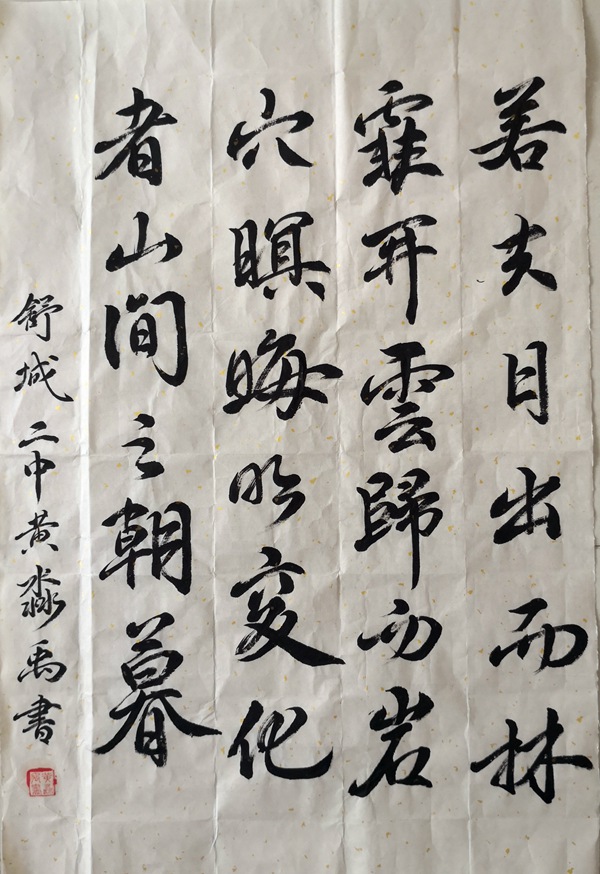 若夫日出而林
霏开雲歸而岩
穴暝晦明变化
者山间之朝暮
舒城二中黄淼禹書